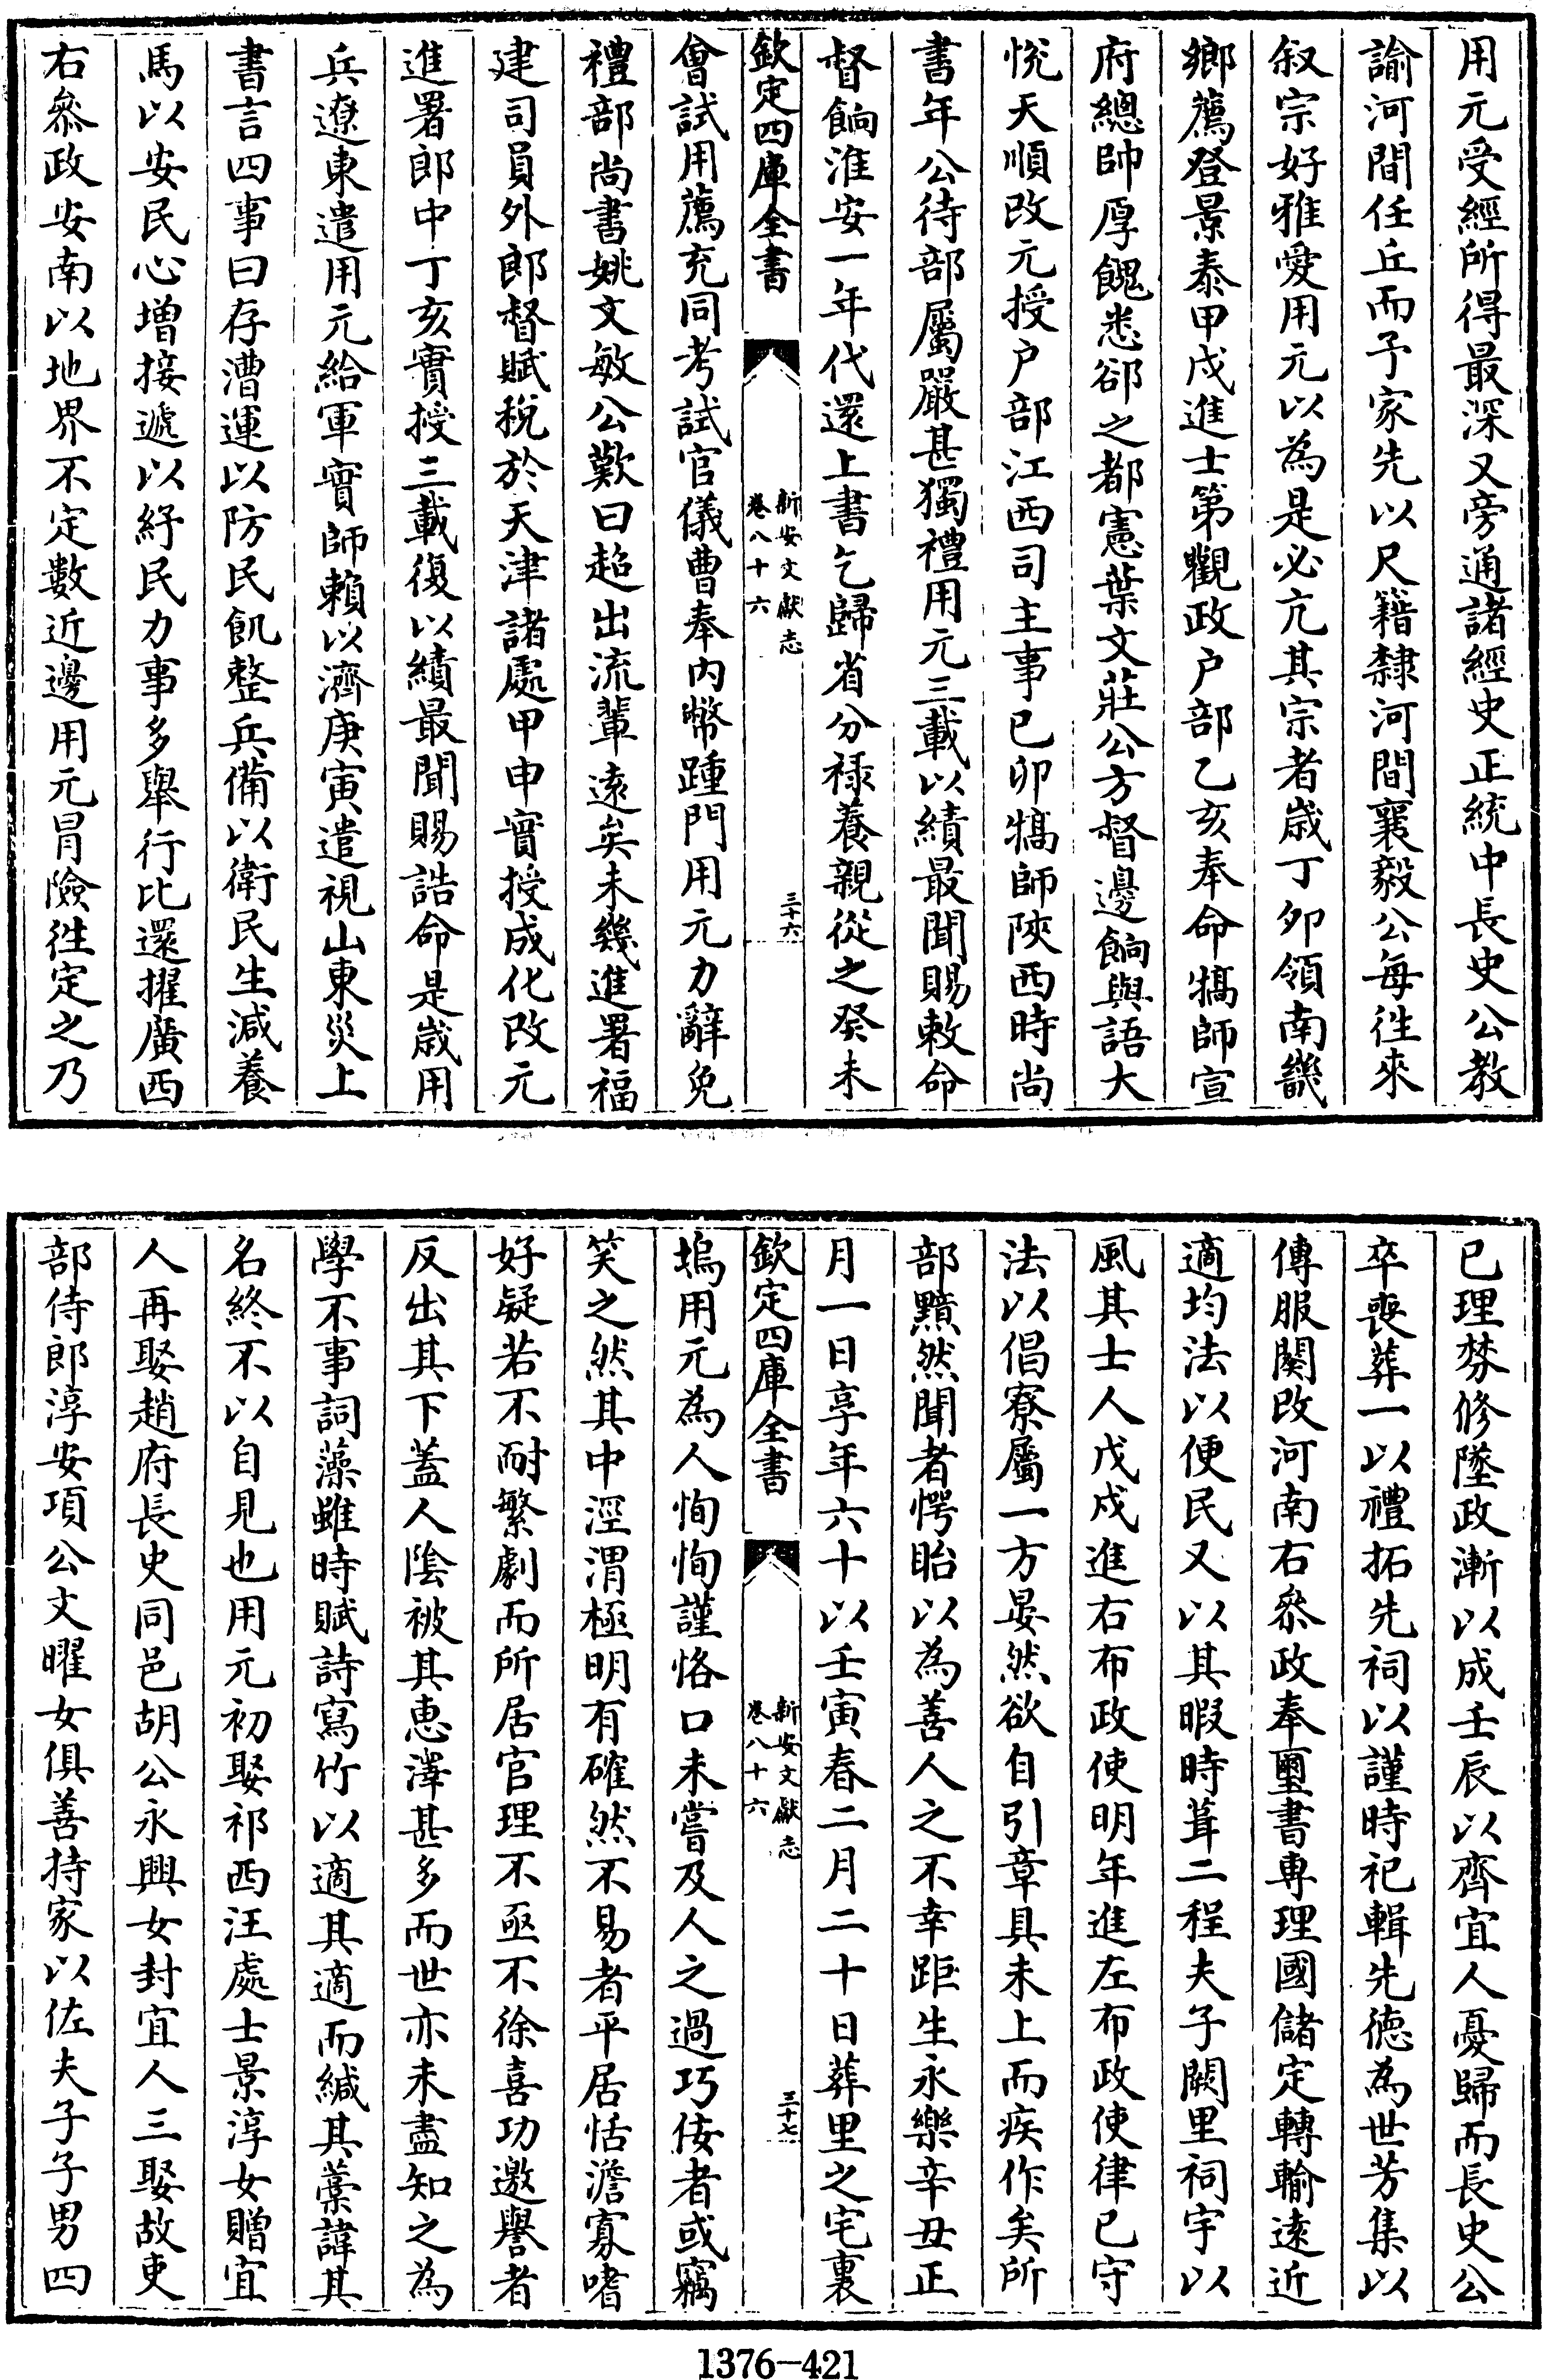 用元受經所得最深又旁通諸經史正統中長史公教
諭河間任丘而予家先以尺籍隸河間襄毅公每徃來
叙宗好雅愛用元以為是必亢其宗者歳丁夘領南畿
鄉薦登景泰甲戌進士第觀政户部乙亥奉命犒師宣
府總帥厚餽悉郤之都憲葉文莊公方督邊餉與語大
悅天順改元授户部江西司主事已卯犒師陜西時尚
書年公待部屬嚴甚獨禮用元三載以績最聞賜敕命
督餉淮安一年代還上書乞歸省分禄養親從之癸未
欽定四庫全書
新安文獻志
卷八十六
三十六
會試用薦充同考試官儀曹奉内幣踵門用元力辭免
禮部尚書姚文敏公歎曰超出流輩逺矣未幾進署福
建司員外郎督賦稅於天津諸處甲申實授成化改元
進署郎中丁亥實授三載復以績最聞賜誥命是歳用
兵遼東遣用元給軍實師賴以濟庚寅遣視山東災上
書言四事曰存漕運以防民飢整兵備以衛民生減養
馬以安民心増接遞以紓民力事多舉行比還擢廣西
右叅政安南以地界不定數近邊用元冒險徃定之乃
已理棼修墜政漸以成壬辰以齊宜人憂歸而長史公
卒喪葬一以禮拓先祠以謹時祀輯先德為世芳集以
傳服闋改河南右叅政奉璽書専理國儲定轉輸逺近
適均法以便民又以其暇時葺二程夫子闕里祠宇以
風其士人戊戌進右布政使明年進左布政使律已守
法以倡寮屬一方晏然欲自引章具未上而疾作矣所
部黯然聞者愕眙以為善人之不幸距生永樂辛丑正
月一日享年六十以壬寅春二月二十日葬里之宅裏
欽定四庫全書
新安文獻志
卷八十六
三十七
塢用元為人恂恂謹恪口未嘗及人之過巧佞者或竊
笑之然其中涇渭極明有確然不易者平居恬澹寡嗜
好疑若不耐繁劇而所居官理不亟不徐喜功邀譽者
反出其下蓋人陰被其惠澤甚多而世亦未盡知之為
學不事詞藻雖時賦詩寫竹以適其適而緘其藁諱其
名終不以自見也用元初娶祁西汪處士景淳女贈宜
人再娶趙府長史同邑胡公永興女封宜人三娶故吏
部侍郎淳安項公文曜女俱善持家以佐夫子子男四
1376-421